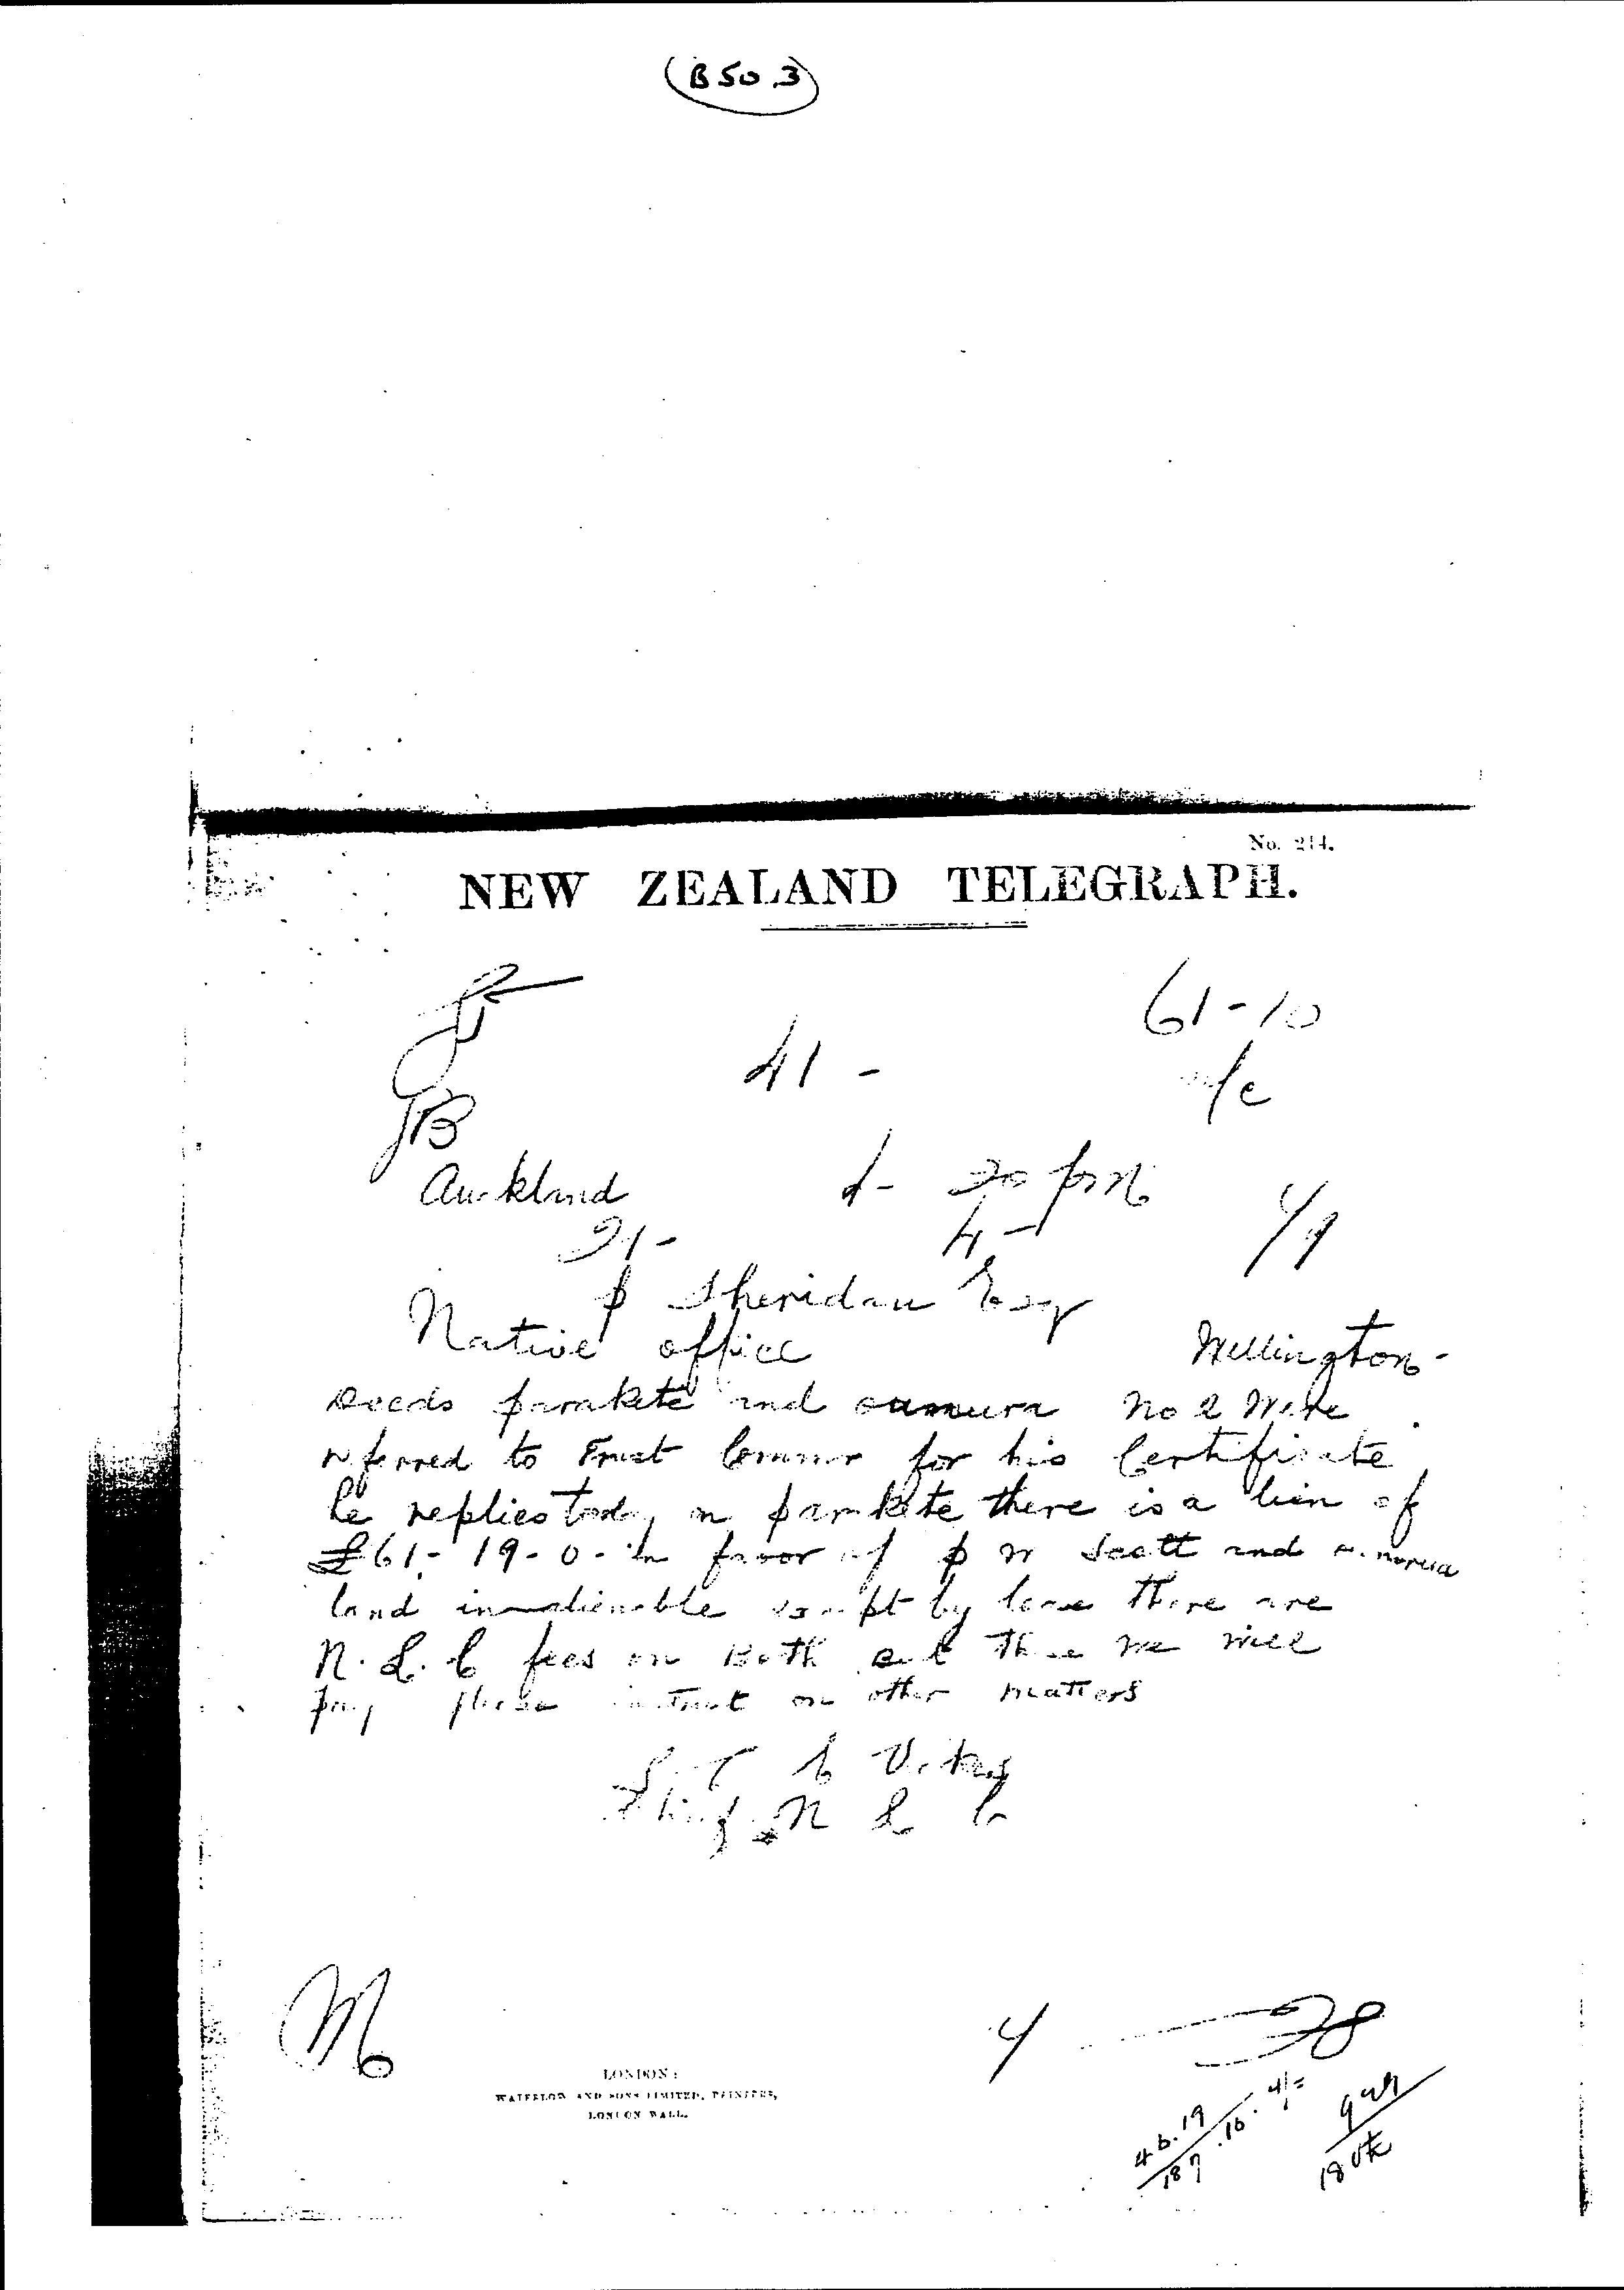 (B 50.3)
No. 214.
NEW ZEALAND TELEGRAPH.
61-10
41 -
Auckland
20 pm
21-
4-
P Sheridan Esq
Native office
Wellington-
Deeds parakete and No 2 Were
referred to Trust Commr for his Certificate
he replies today on parakete there is a lien of
£61-19-0- in favor of P W Scott and
land inalienable except by lease there are
N. L. C fees on Both but these we will
pay please instruct on other matters
N L C
LONDON:
WATERLOW AND SONS LIMITED, PRINTERS,
LONDON WALL.